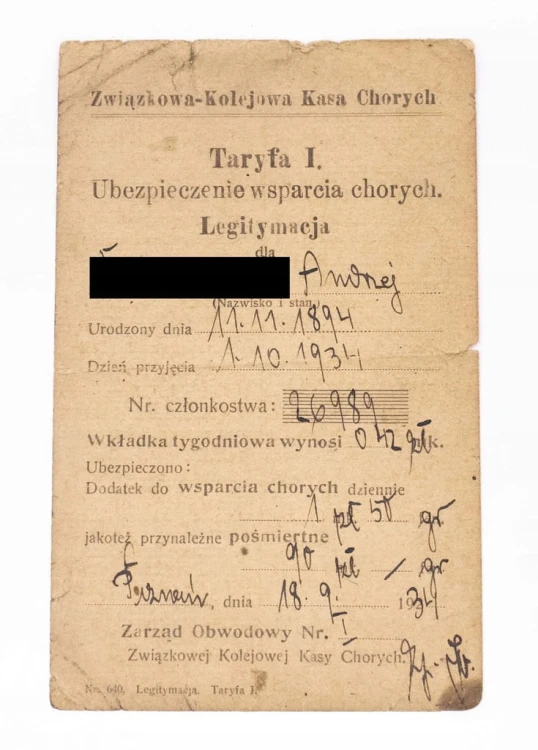 Związkowa-Kolejowa Kasa Chorych
Taryfa I.
Ubezpieczenie wsparcia chorych.
Legitymacja
dla
Andrzej
(Nazwisko i stan)
Urodzony dnia 11.11.1894
Dzień przyjęcia 1.10.1934
Nr. członkostwa: 26989
Wkładka tygodniowa wynosi 0 42 zł mk.
Ubezpieczono:
Dodatek do wsparcia chorych dziennie
1 zł 50 gr
jakoteż przynależne pośmiertne
90 zł — gr
Poznań, dnia 18. 9. 1934
Zarząd Obwodowy Nr. I
Związkowej Kolejowej Kasy Chorych.
Nr. 640. Legitymacja. Taryfa I.